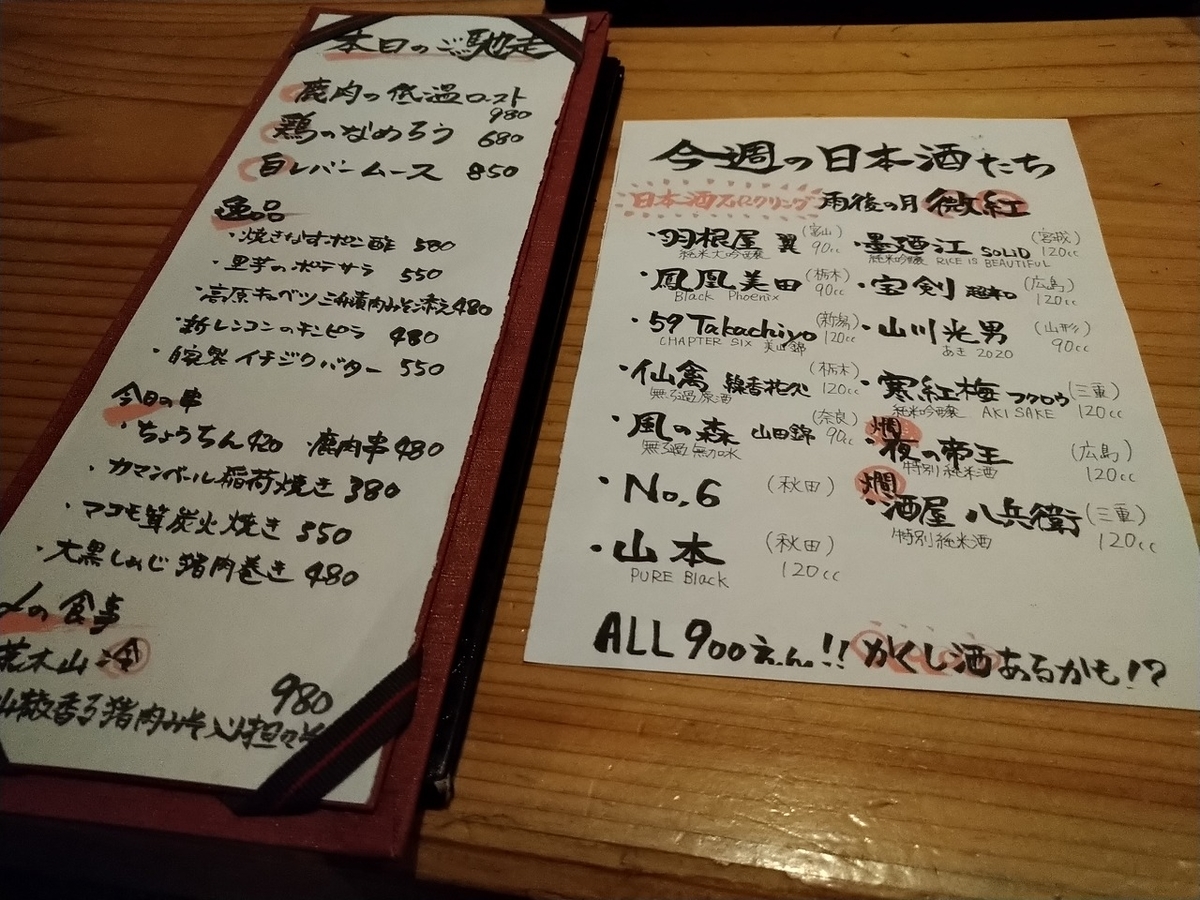 本日のご馳走
鹿肉の低温ロースト
980
鶏のなめろう 680
白レバームース 850
逸品
・焼きなすポン酢 580
・里芋のポテサラ 550
・高原キャベツ 猪肉みそ添え 480
・新レンコンのキンピラ 480
・自家製イチジクバター 550
今日の串
・ちょうちん 420 ・鹿肉串 480
・カマンベール稲荷焼き 380
・マコモ茸炭火焼き 550
・大黒しめじ猪肉巻き 480
〆の食事
荒木山 冷
980
山椒香る猪肉みそ入り担々そ
今週の日本酒たち
日本酒スパークリング 雨後の月 微紅
・羽根屋 翼 (富山) 90cc
純米大吟醸
・鳳凰美田 (栃木) 90cc
Black Phoenix
・59 Takachiyo (新潟) 120cc
CHAPTER SIX 美山錦
・仙禽 線香花火 (栃木) 120cc
無ろ過原酒
・風の森 山田錦 (奈良) 90cc
無ろ過無加水
・No,6 (秋田)
・山本 (秋田) 120cc
PURE Black
・墨廼江 SOLID (宮城) 120cc
純米吟醸 RICE IS BEAUTIFUL
・宝剣 超辛口 (広島) 120cc
・山川光男 (山形) 90cc
あき 2020
・寒紅梅 フクロウ (三重) 120cc
純米吟醸 AKI SAKE
燗
・夜の帝王 (広島) 120cc
特別純米酒
燗
・酒屋八兵衛 (三重) 120cc
特別純米酒
ALL 900えん!! かくし酒あるかも!?